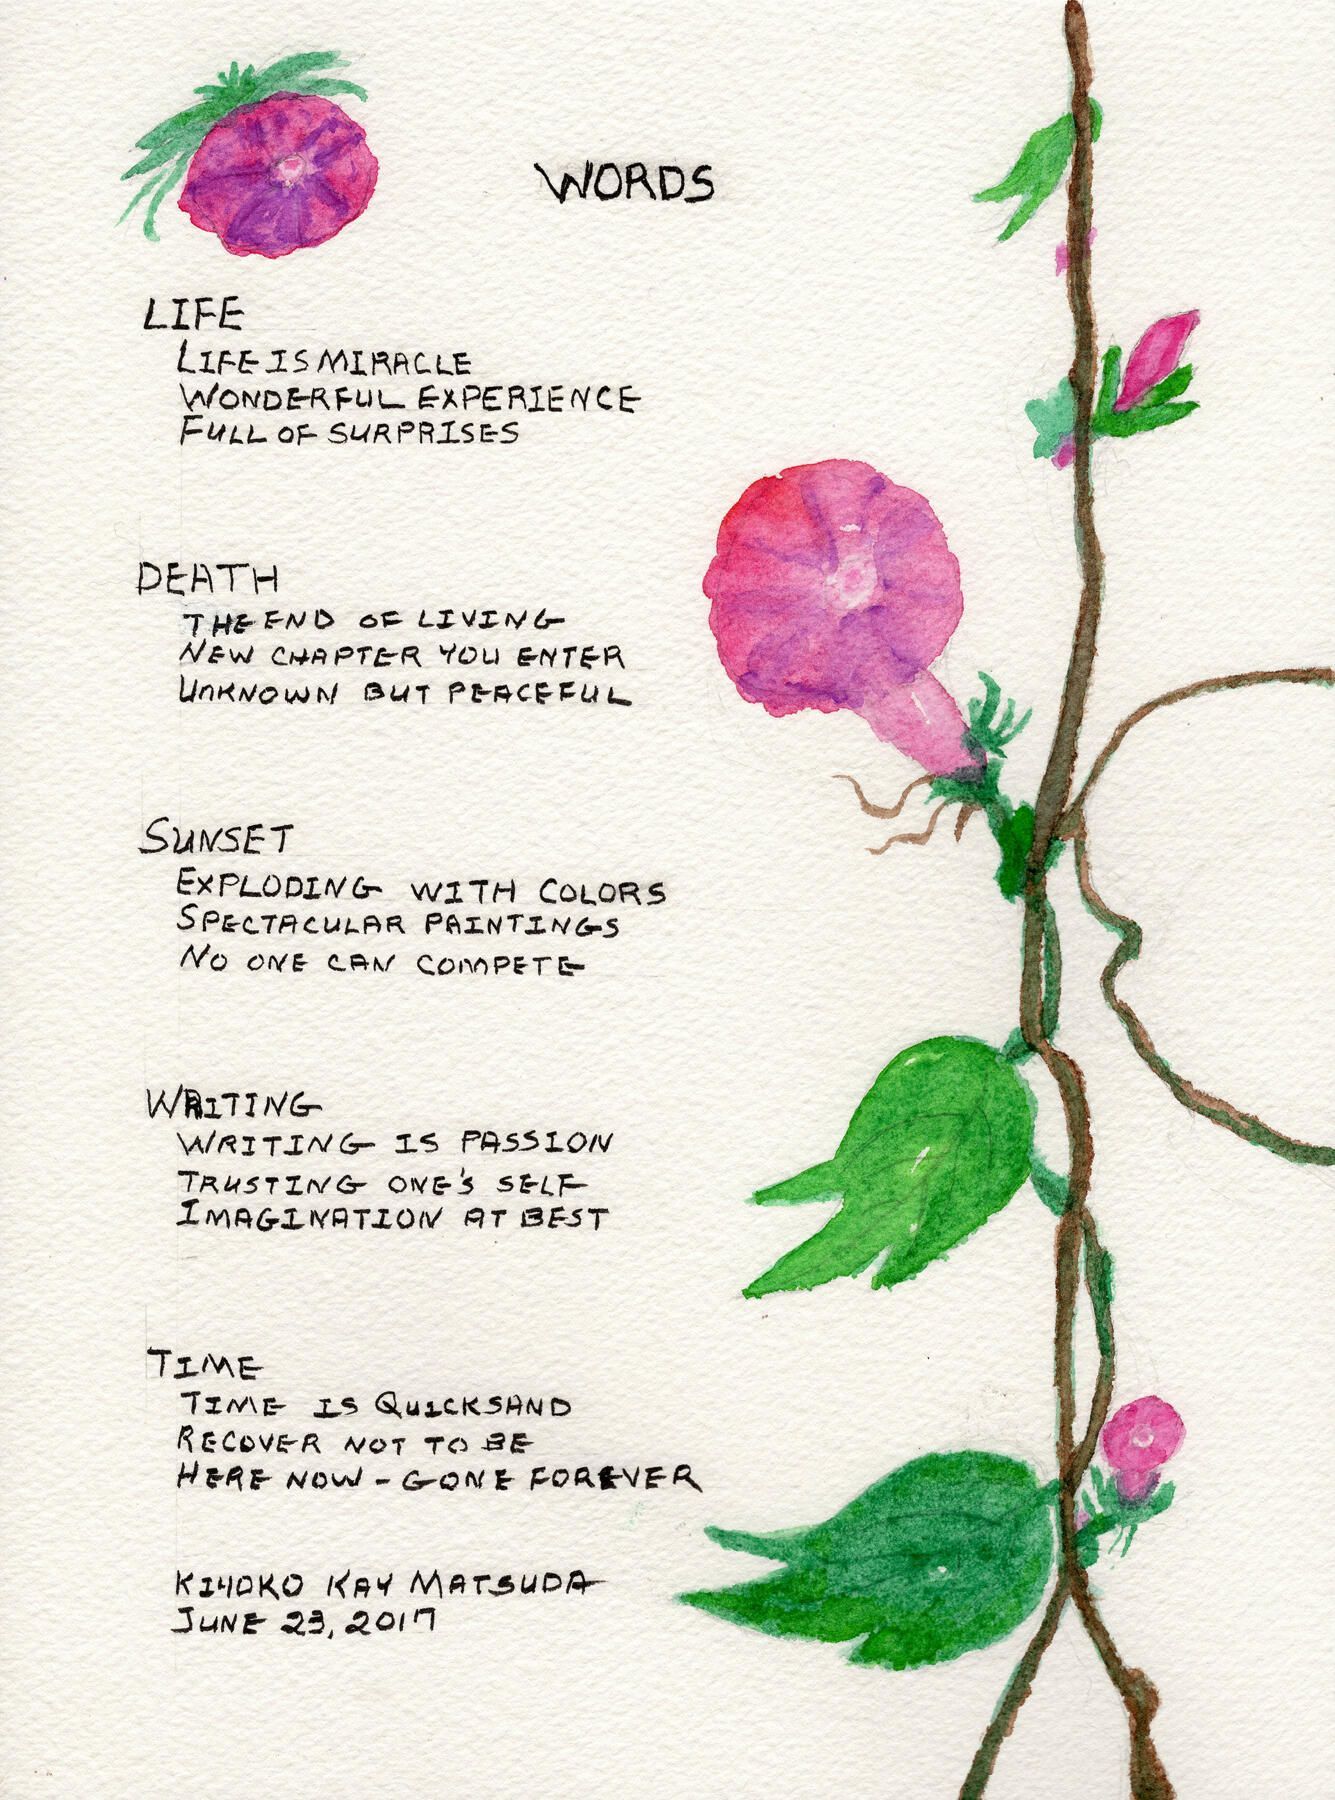 WORDS
LIFE
LIFE IS MIRACLE
WONDERFUL EXPERIENCE
FULL OF SURPRISES
DEATH
THE END OF LIVING
NEW CHAPTER YOU ENTER
UNKNOWN BUT PEACEFUL
SUNSET
EXPLODING WITH COLORS
SPECTACULAR PAINTINGS
NO ONE CAN COMPETE
WRITING
WRITING IS PASSION
TRUSTING ONE'S SELF
IMAGINATION AT BEST
TIME
TIME IS QUICKSAND
RECOVER NOT TO BE
HERE NOW - GONE FOREVER
KIYOKO KAY MATSUDA
JUNE 23, 2017